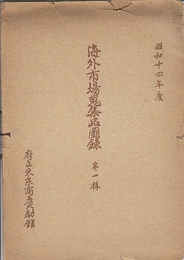 昭和十四年度
海外市場蒐集品圖録 第一輯
府立東京商工奨励館